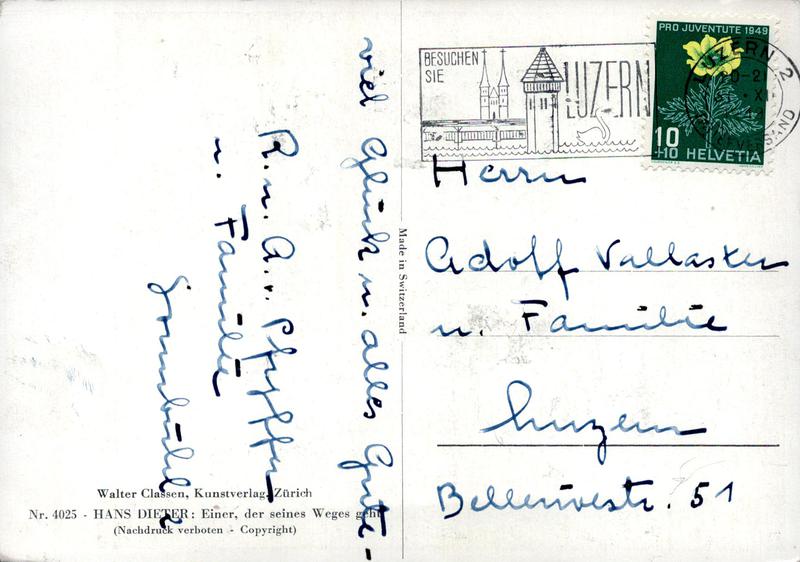 viel Glück u. alles Gute-
R. u. A. v. Pfyffer
u. Familie
2
Made in Switzerland
Walter Classen, Kunstverlag, Zürich
Nr. 4025 - HANS DIETER: Einer, der seines Weges geht
(Nachdruck verboten - Copyright)
BESUCHEN
SIE
LUZERN
PRO JUVENTUTE 1949
10
+10 HELVETIA
LUZERN 2
Herrn
Adolf Vallaster
u. Familie
Luzern
Bellerivestr. 51